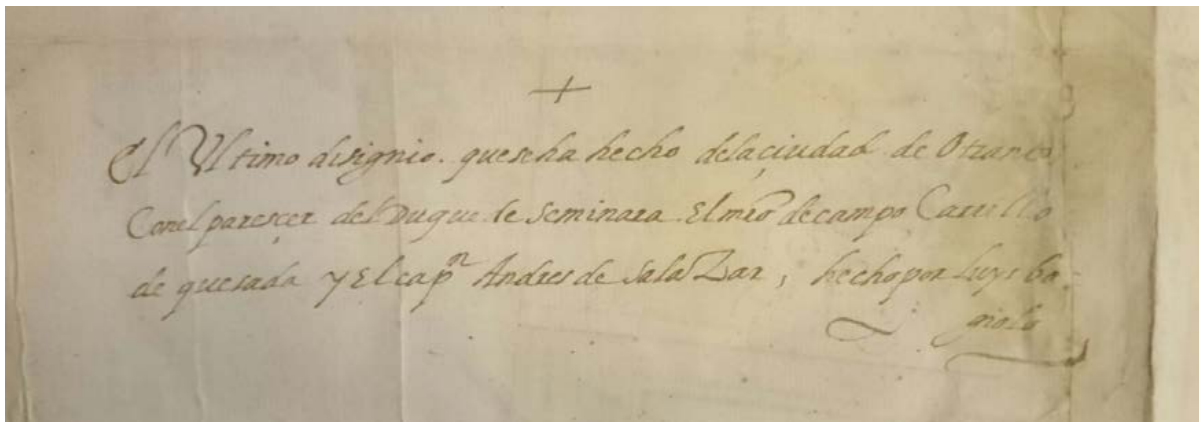 +
El Ultimo disignio. que se ha hecho de la ciudad de Otranto
Con el parescer del Duque de Seminara El mro de campo Carrillo
de quesada y El capn Andres de SalaZar, hecho por Luys ba-
giolo